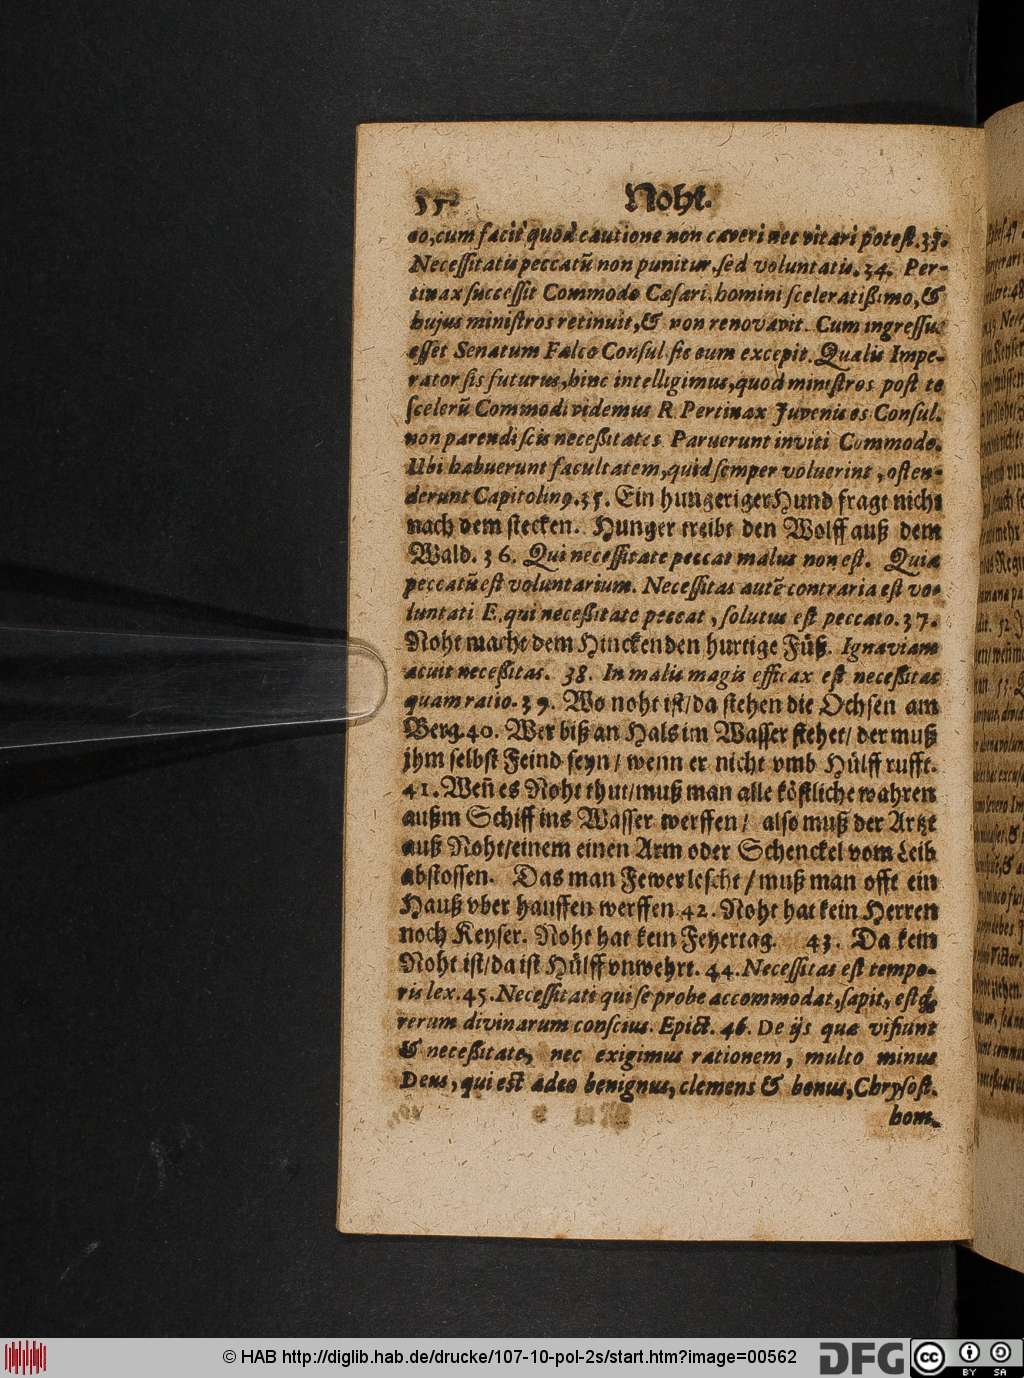 Noht.
eo, cum facit quod cautione non caveri nec vitari potest. 33.
Necessitatis peccatū non punitur, sed voluntatis. 34. Per-
tinax successit Commodo Cæsari, homini sceleratißimo, &
hujus ministros retinuit, & non renovavit. Cum ingressus
esset Senatum Falco Consul sic eum excepit. Qualis Impe-
rator sis futurus, hinc intelligimus, quod ministros post te
scelerū Commodi videmus R. Pertinax Juvenis es Consul.
non parendi scis neceßitates Paruerunt inviti Commodo.
Ubi habuerunt facultatem, quid semper voluerint, osten-
derunt Capitolinꝰ. 35. Ein hungeriger Hund fragt nicht
nach dem stecken. Hunger treibt den Wolff auß dem
Wald. 36. Qui necessitate peccat malus non est. Quia
peccatū est voluntarium. Necessitas autē contraria est vo-
luntati E. qui neceßitate peccat, solutus est peccato. 37.
Noht macht dem Hinckenden hurtige Füß. Ignaviam
acuit neceßitas. 38. In malis magis efficax est neceßitas
quam ratio. 39. Wo noht ist/ da stehen die Ochsen am
Berg. 40. Wer biß an Hals im Wasser stehet/ der muß
jhm selbst Feind seyn/ wenn er nicht vmb Hülff rufft.
41. Weñ es Noht thut/ muß man alle köstliche wahren
außm Schiff ins Wasser werffen/ also muß der Artzt
auß Noht/ einem einen Arm oder Schenckel vom Leib
abstossen. Das man Fewer lescht/ muß man offt ein
Hauß vber hauffen werffen 42. Noht hat kein Herren
noch Keyser. Noht hat kein Feyertag. 43. Da kein
Noht ist/ da ist Hülff vnwehrt. 44. Necessitas est tempo-
ris lex. 45. Necessitati qui se probe accommodat, sapit, estq́;
rerum divinarum conscius. Epict. 46. De ijs quæ vi fiunt
& neceßitate, nec exigimus rationem, multo minus
Deus, qui est adeo benignus, clemens & bonus, Chrysost.
hom.
© HAB http://diglib.hab.de/drucke/107-10-pol-2s/start.htm?image=00562
DFG
cc
BY SA